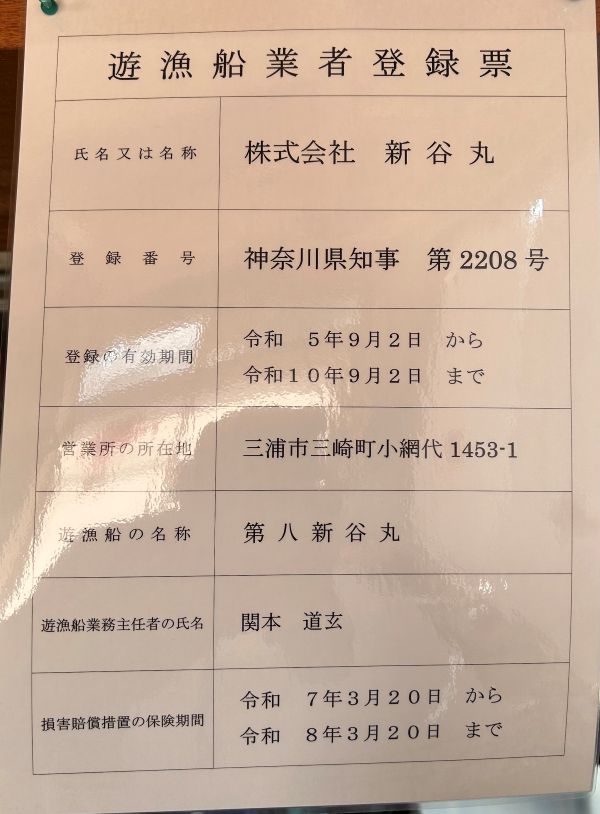 遊漁船業者登録票
氏名又は名称 株式会社 新谷丸
登録番号 神奈川県知事 第2208号
登録の有効期間 令和 5年9月2日 から
令和10年9月2日 まで
営業所の所在地 三浦市三崎町小網代1453-1
遊漁船の名称 第八新谷丸
遊漁船業務主任者の氏名 関本 道玄
損害賠償措置の保険期間 令和 7年3月20日 から
令和 8年3月20日 まで